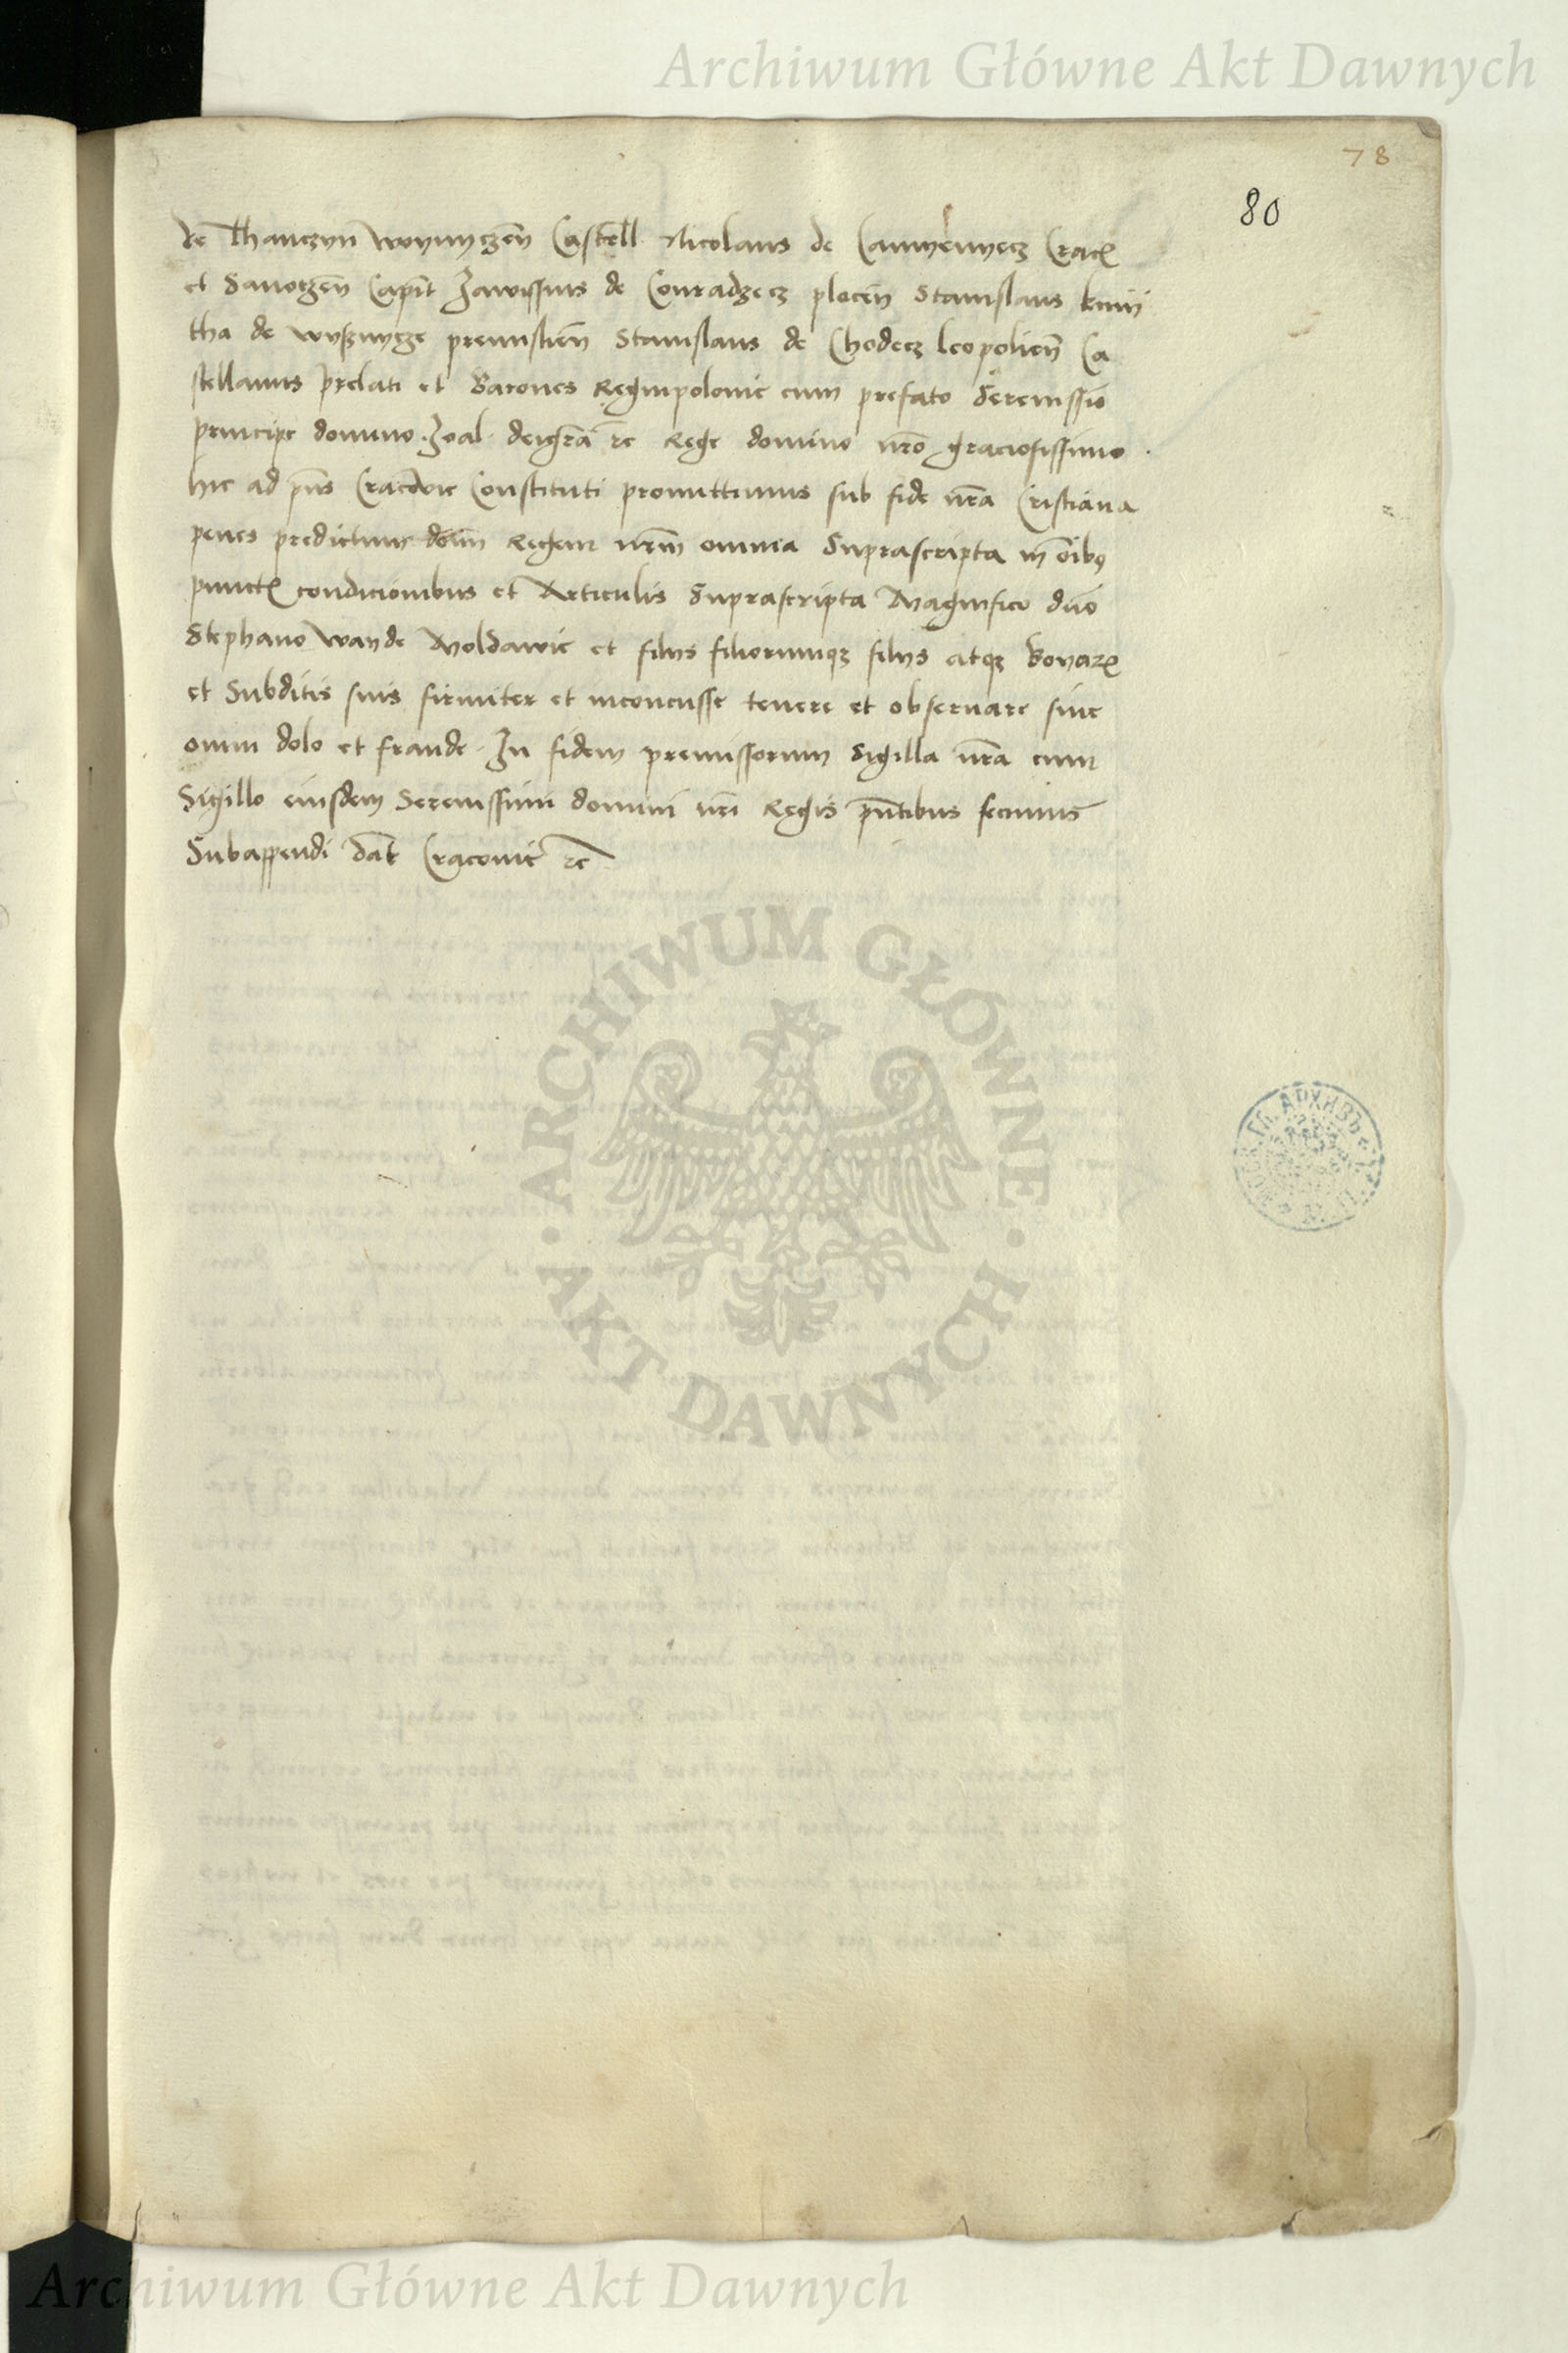 Archiwum Główne Akt Dawnych
78
80
de Thanczyn Woynyczen̄ Castell Nicolaus de Camyenyecz Crac
et Sanoczen̄ Capit Zawissius de Conradzecz plocen̄ Stanislaus kmij
tha de wysznycze premislien̄ Stanislaus de Chodecz leopolien̄ Ca
stellanus prelati et Barones Regnipolonie cum prefato Serenissio
principe domino Joal deigrā rc Rege domino nrō graciosissimo
hic ad pñs Cracovie Constituti promittimus sub fide nrā Cristiana
penes predictum dom̄ Regem nrm̄ omnia Suprascripta in ōibꝫ
punct condicionibus et Articulis Suprascripta Magnifico dn̄o
Stephano Wayde Moldawie et filiis filiorumqꝫ filiis atqꝫ Boyar
et Subditis suis firmiter et inconcusse tenere et obseruare sine
omni dolo et fraude In fidem premissorum Sigilla nrā cum
Sigillo eiusdem Serenissimi domini nri Regis pn̄tibus fecimus
Subappendi Dat̄ Cracovie rc
ARCHIWUM GŁÓWNE AKT DAWNYCH
ГЛ. АРХИВЪ
Archiwum Główne Akt Dawnych